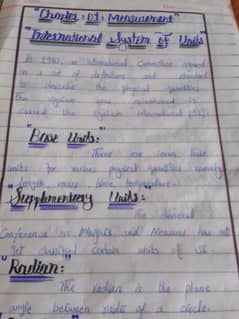 "Chapter: 01: Measurement"
"International System of Units
In 1960, an international Committee agreed
on a set of definitions and
to describe the physical quantities
the system was established is
the system international (SI).
"Base Units:"
There are seven base
units for various physical quantities namely
length, mass, time, temperature
"Supplementary Units:"
The General
Conference on and Measures has not
yet classified certain units of SI
"Radian:"
The radian is the plane
angle between radii of a circle